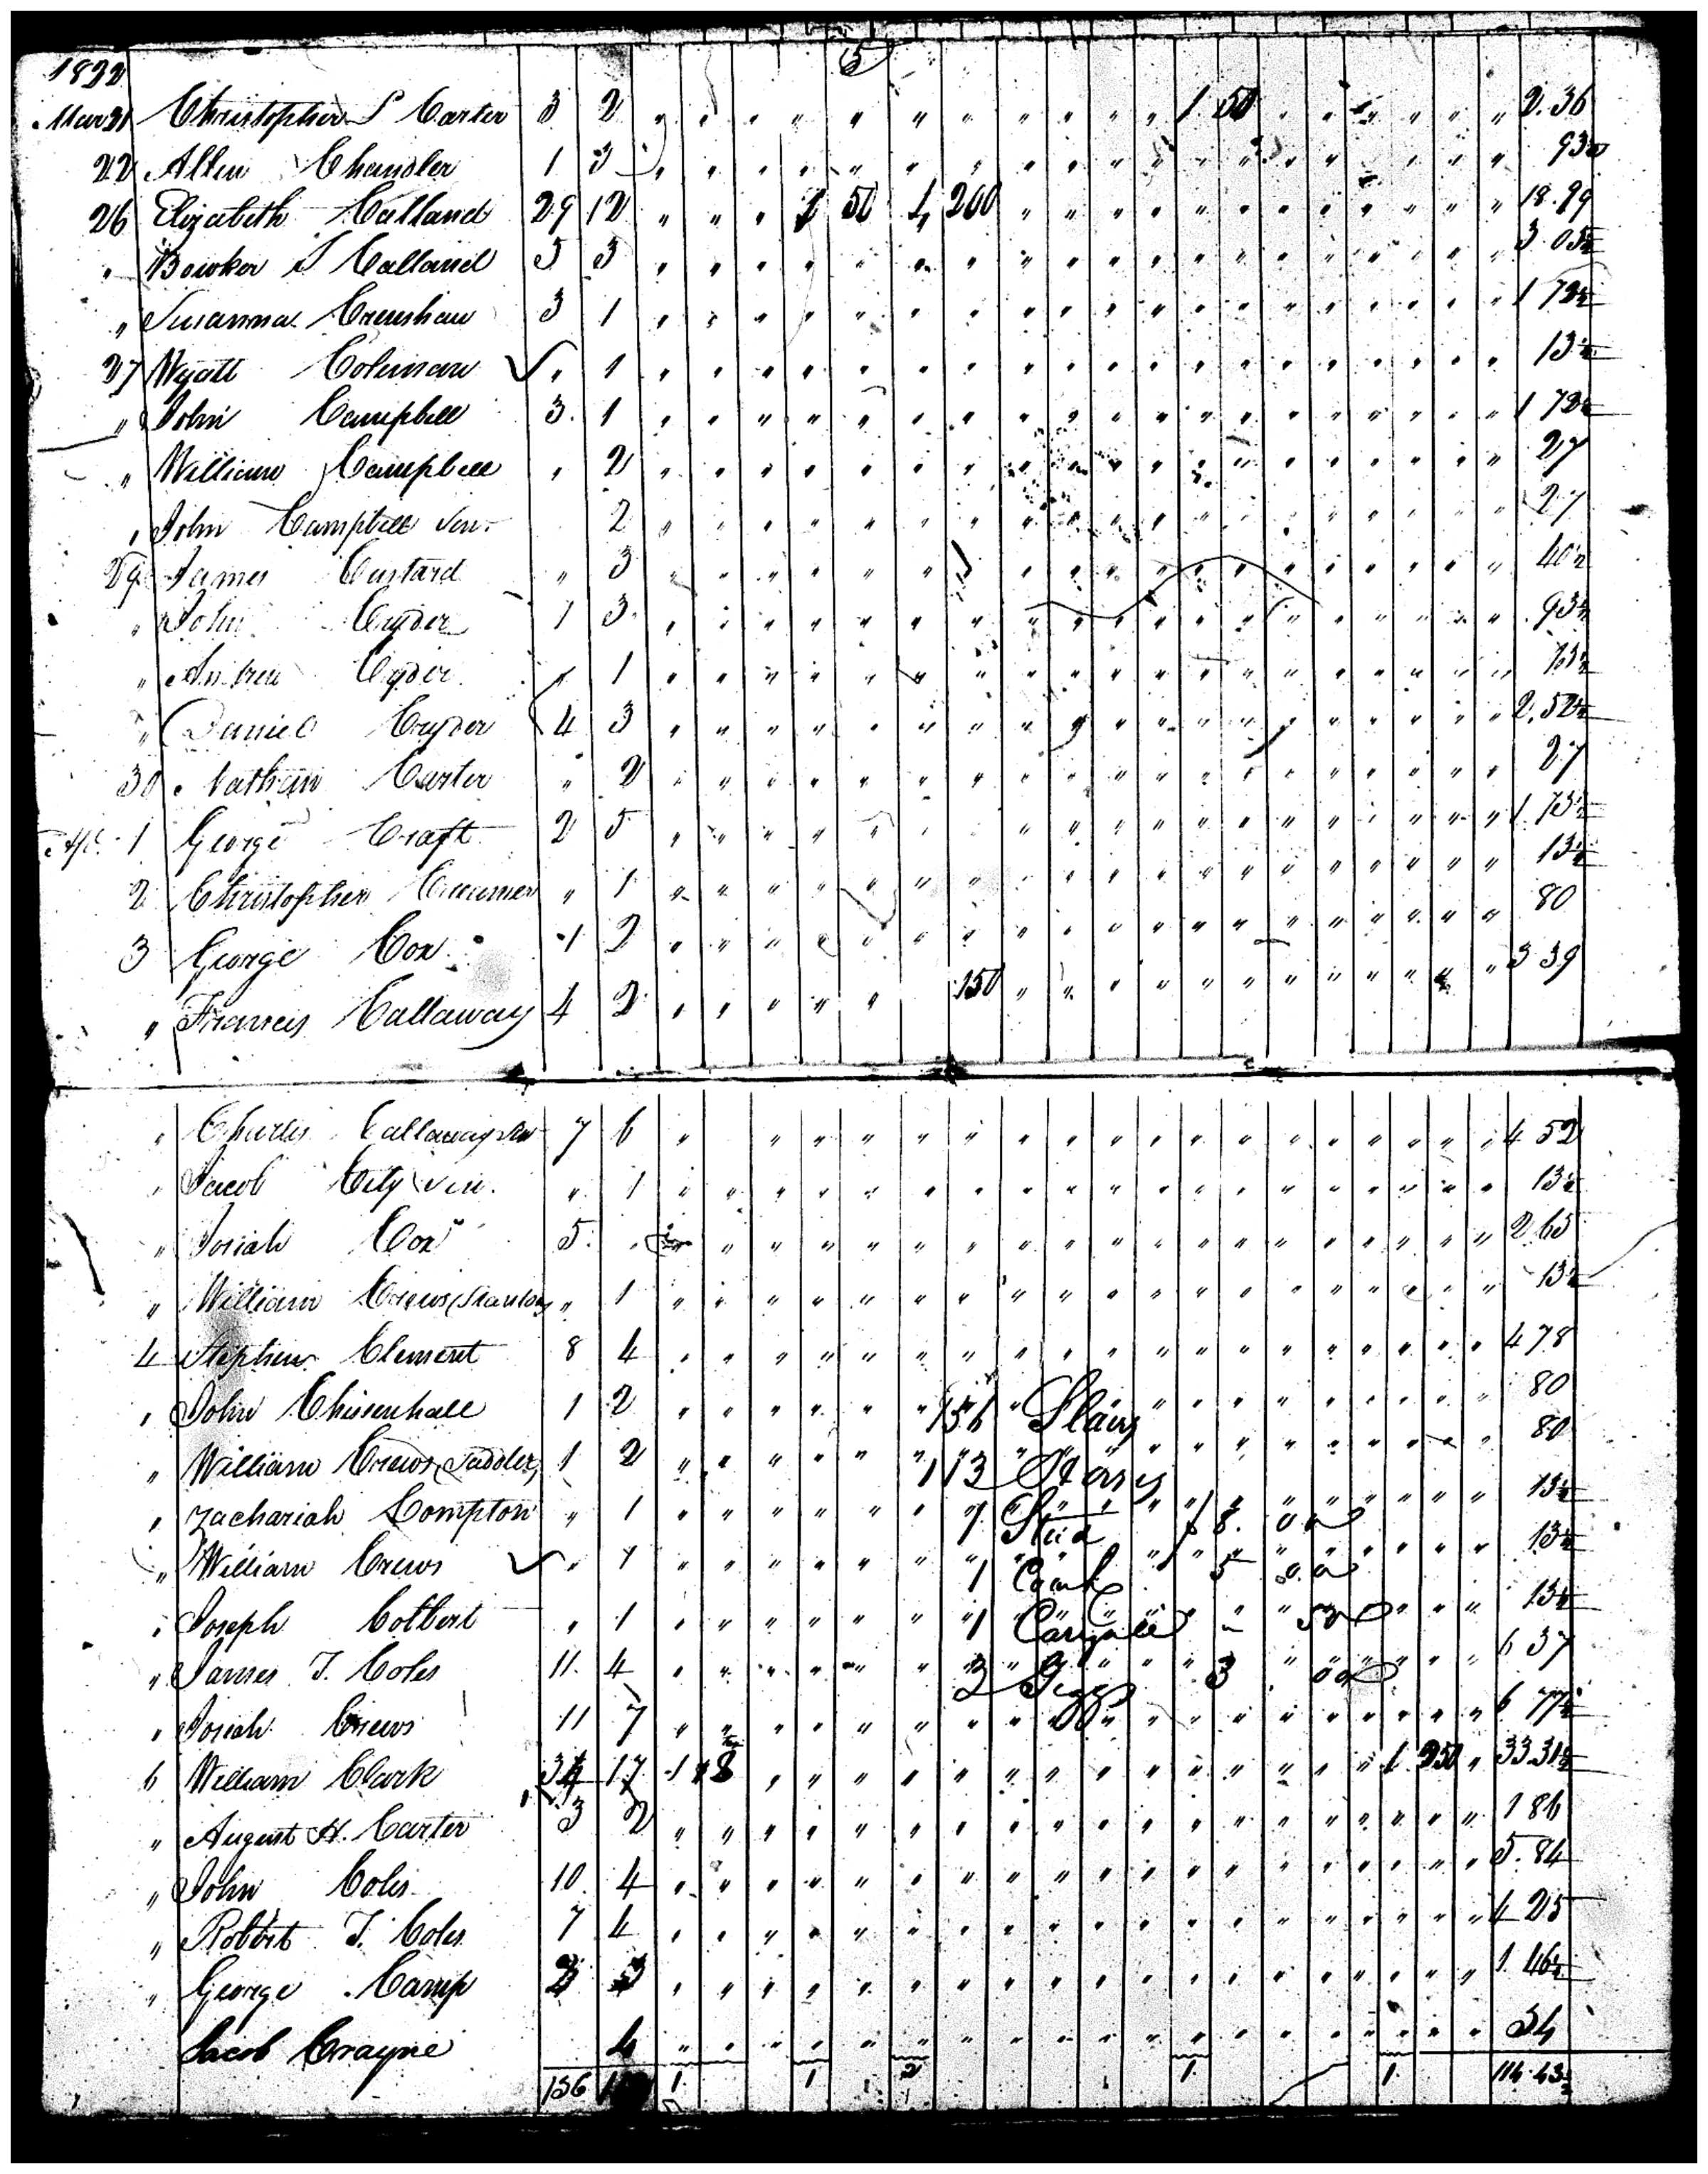 1822
5
Mar 21 Christopher S Carter 3 2 " " " " " " " " " " " 1 50 " " " " " " " 2.36
22 Allen Chandler 1 3 " " " " " " " " " " " " " " " " " " " 93½
26 Elizabeth Calland 29 12 " " " 1 50 1 200 " " " " " " " " " " " " 18.99
" Bowker S Calland 5 3 " " " " " " " " " " " " " " " " " " 3 05½
" Susanna Crenshaw 3 1 " " " " " " " " " " " " " " " " " " 1 72½
27 Wyatt Coleman " 1 " " " " " " " " " " " " " " " " " " 13½
" John Campbell 3 1 " " " " " " " " " " " " " " " " " " 1 72½
" William Campbell " 2 " " " " " " " " " " " " " " " " " " 27
" John Campbell Sen. 2 " " " " " " " " " " " " " " " " " " 27
29 James Custard " 3 " " " " " " " " " " " " " " " " " " 40½
" John Cryder 1 3 " " " " " " " " " " " " " " " " " " 93½
" Andrew Cryder " 1 " " " " " " " " " " " " " " " " " " 13½
" Daniel Cryder 4 3 " " " " " " " " " " " " " " " " " " 2.52½
30 Nathan Carter " 2 " " " " " " " " " " " " " " " " " " 27
Apl. 1 George Craft 2 5 " " " " " " " " " " " " " " " " " " 1.73½
2 Christopher " 1 " " " " " " " " " " " " " " " " " " 13½
3 George Cox 1 2 " " " " " " " " " " " " " " " " " " 80
" Francis Callaway 4 2 " " " " " 150 " " " " " " " " " " " " 3 39
" Charles Callaway 7 6 " " " " " " " " " " " " " " " " " " 4 52
" Jacob Sen. " 1 " " " " " " " " " " " " " " " " " " 13½
" Josiah Cox 5 " " " " " " " " " " " " " " " " " " 2 65
" William Crews (Stanton) " 1 " " " " " " " " " " " " " " " " " " 13½
4 Stephen Clement 8 4 " " " " " " " " " " " " " " " " " " 4 78
" John Chissenhall 1 2 " " " " " " " " " " " " " " " " " 80
156 Slaves
" William Crews (Saddler) 1 2 " " " " " " " " " " " " " " " " " 80
113 Horses
" Zachariah Compton " 1 " " " " " " " " " " " " " " " " 13½
1 Stud 18. 00
" William Crews " 1 " " " " " " " " " " " " " " " " 13½
1 Coach 5 00
" Joseph Colbert " 1 " " " " " " " " " " " " " " " " 13½
1 Carryall " 50
" James T. Coles 11 4 " " " " " " " " " " " " " " " " 6 37
2 Giggs 3 00
" Josiah Crews 11 7 " " " " " " " " " " " " " " " " " " 6 77½
6 William Clark 34 17 1 8 " " " " " " " " " " " " " 1 250 " 33 31½
" August H. Carter 3 2 " " " " " " " " " " " " " " " " " " 1 86
" John Coles 10 4 " " " " " " " " " " " " " " " " " " 5.84
" Robert T. Coles 7 4 " " " " " " " " " " " " " " " " " " 4 25
" George Camp 2 3 " " " " " " " " " " " " " " " " " " 1 46½
Jacob Crayne 4 " " " " " " " " " " " " " " " " " " 54
156 1 1 2 1 1 114.43½